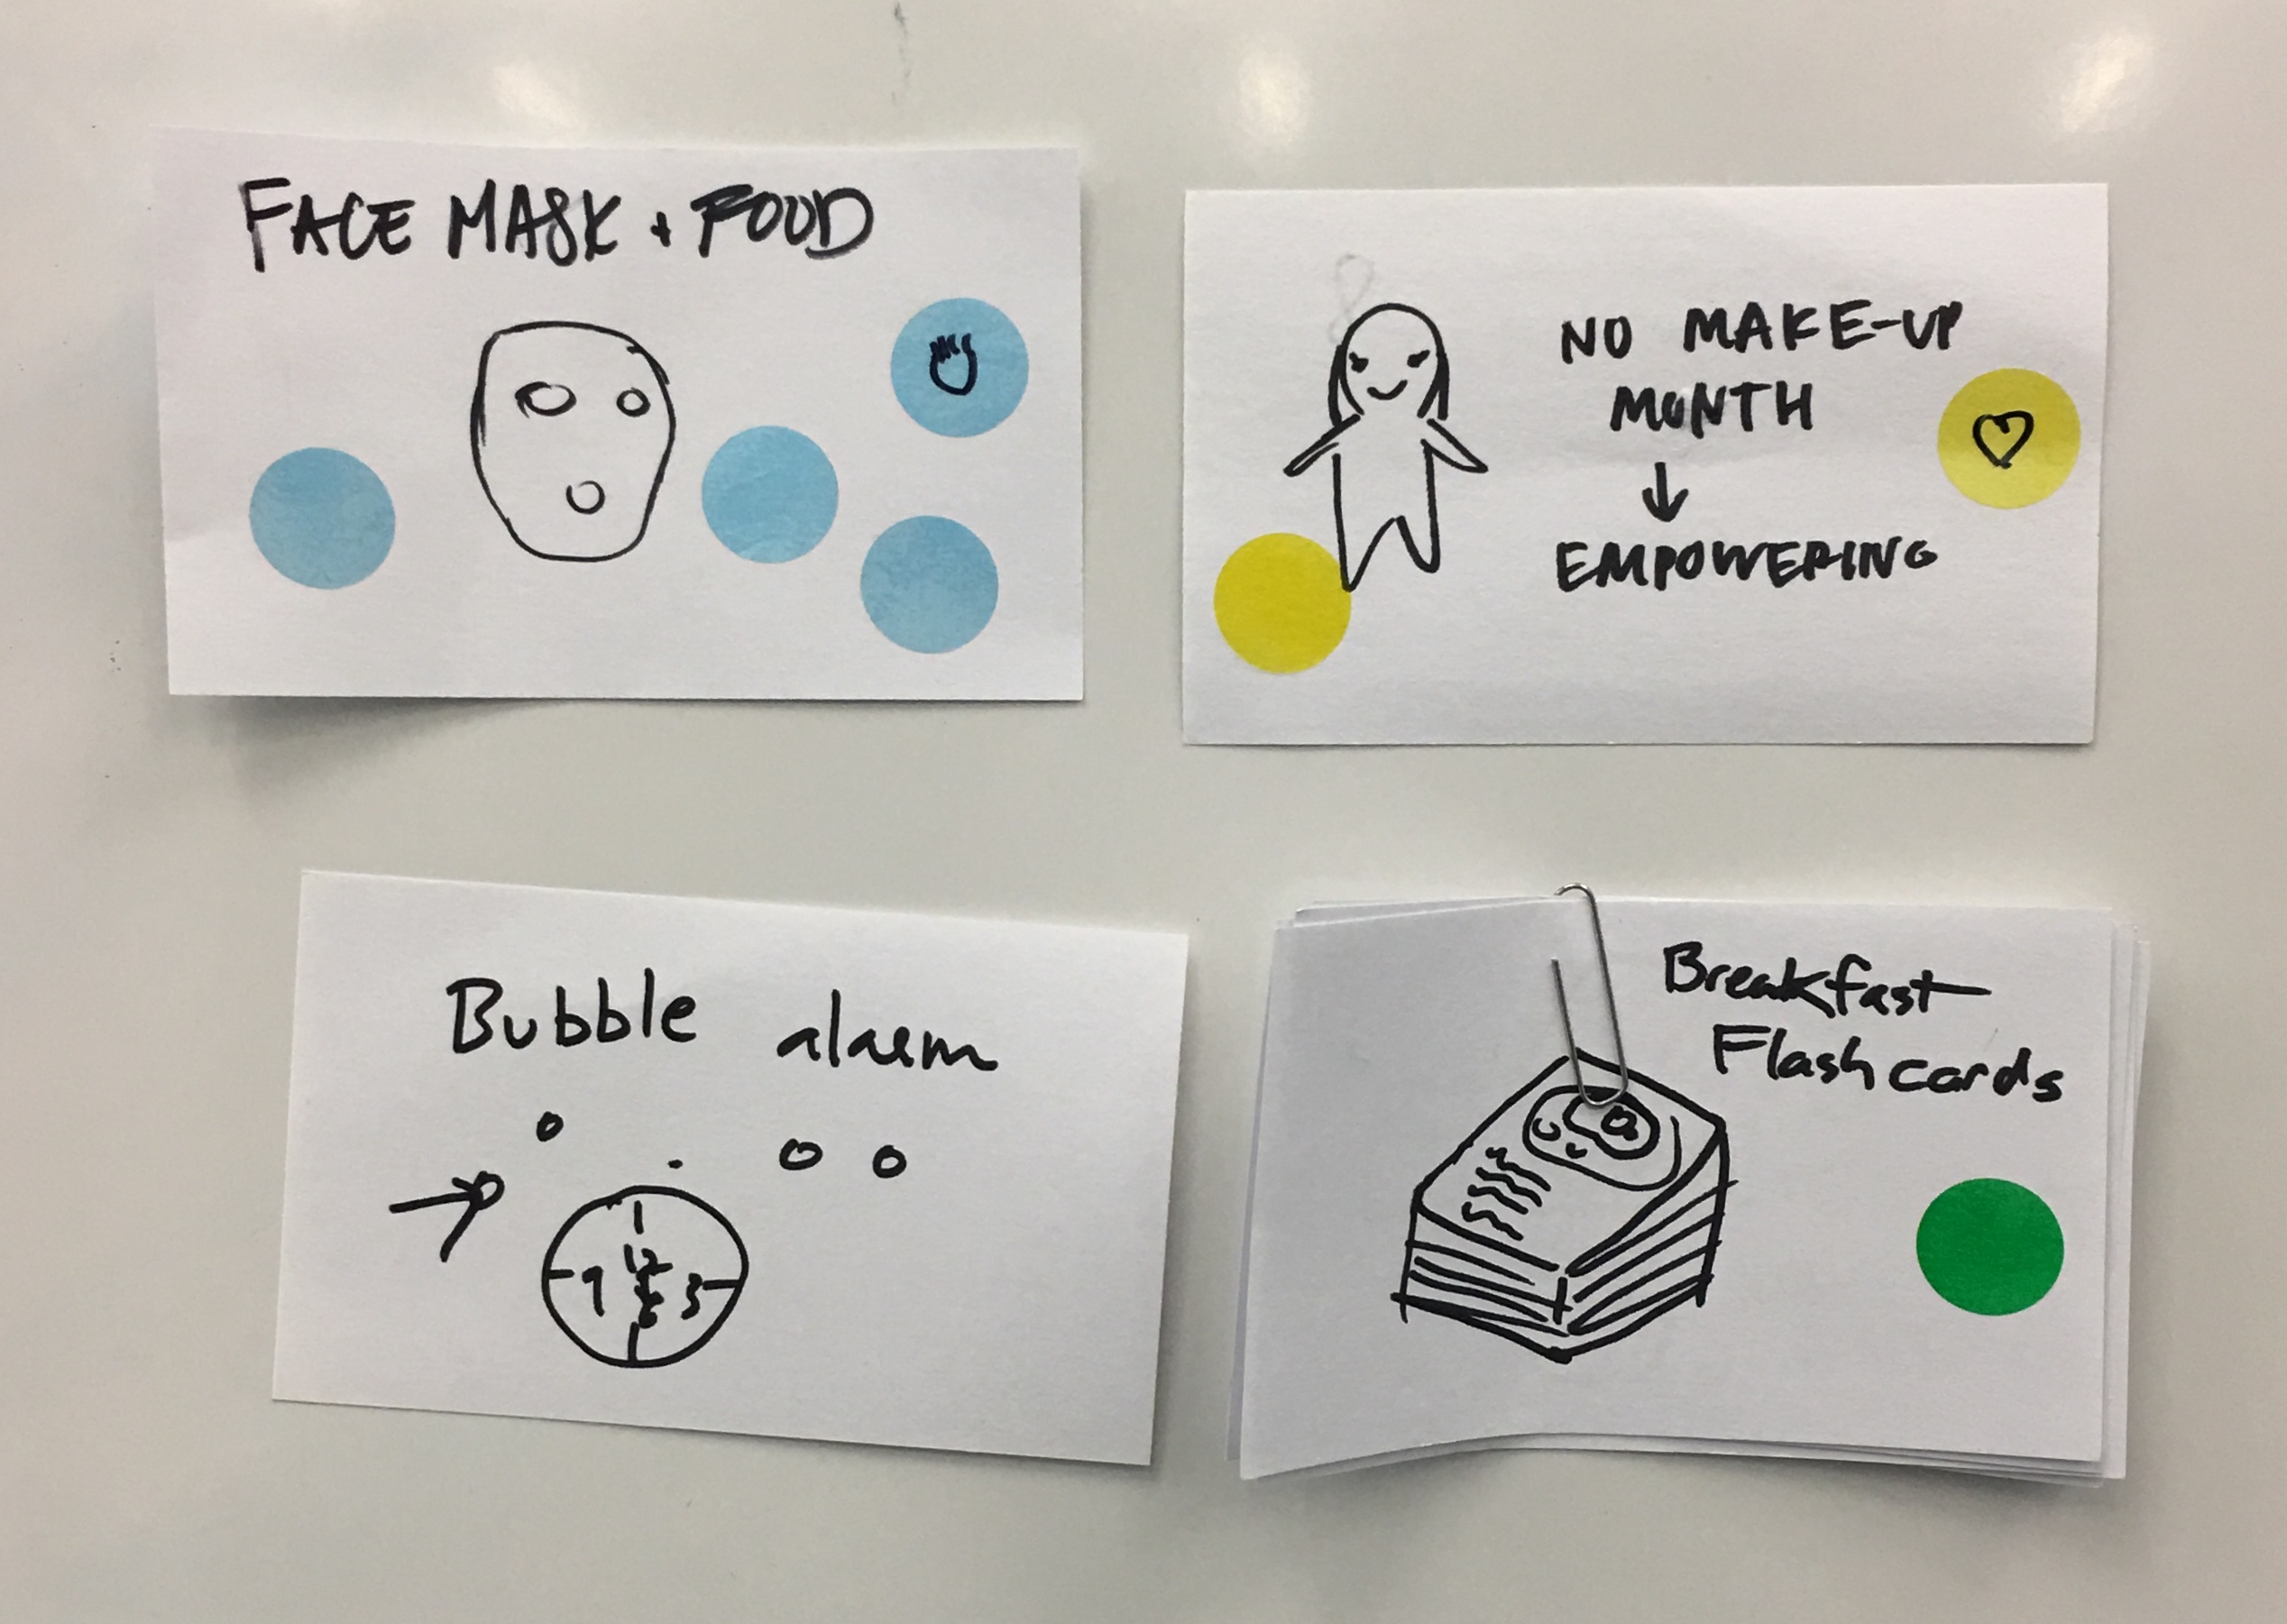 FACE MASK + FOOD
NO MAKE-UP
MONTH
↓
EMPOWERING
Bubble alarm
12
9 3
6
Breakfast
Flash cards